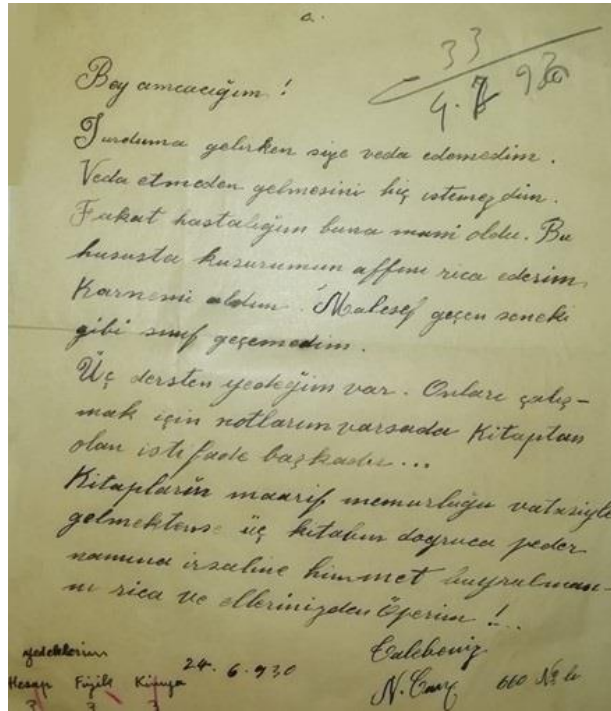 33
4. 7 930
Bey amcacığım !
Yurduma gelirken size veda edemedim.
Veda etmeden gelmesini hiç istemezdim.
Fakat hastalığım buna mani oldu. Bu
hususta kusurumun affını rica ederim
Karnemi aldım. Malesef geçen seneki
gibi sınıf geçemedim.
Üç dersten yedeğim var. Onları çalış-
mak için notlarım varsada Kitaptan
olan istifade başkadır...
Kitapların maarif memurluğu vatasiyle
gelmektense üç kitabın doğruca peder
namına irsaline himmet buyrulman-
nı rica ve ellerinizden Öperim !..
Talebeniz
yedeklerim
24. 6. 930
N. 660 No lu
Hesap Fizik Kimya
3 3 3